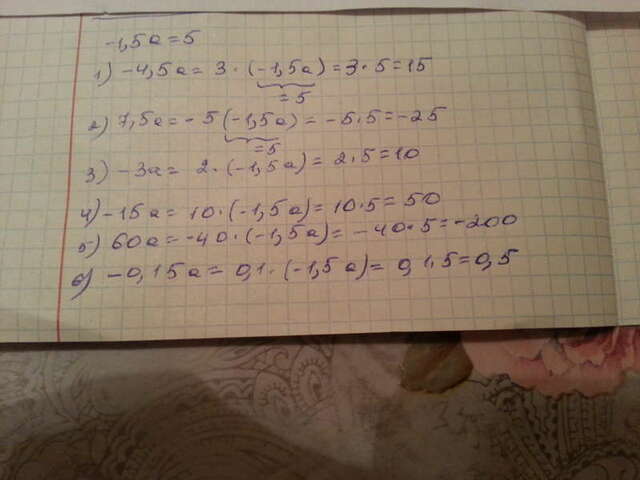 -1,5a=5
1) -4,5a = 3·(-1,5a) = 3·5=15
=5
2) 7,5a = -5(-1,5a) = -5·5=-25
=5
3) -3a = 2·(-1,5a) = 2·5=10
4) -15a = 10·(-1,5a) = 10·5 = 50
5) 60a = -40·(-1,5a) = -40·5=-200
6) -0,15a = 0,1·(-1,5a) = 0,1·5=0,5